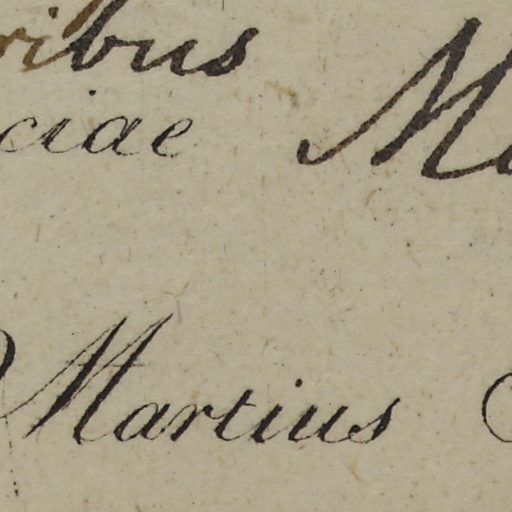 ribus
ciae M
Martius